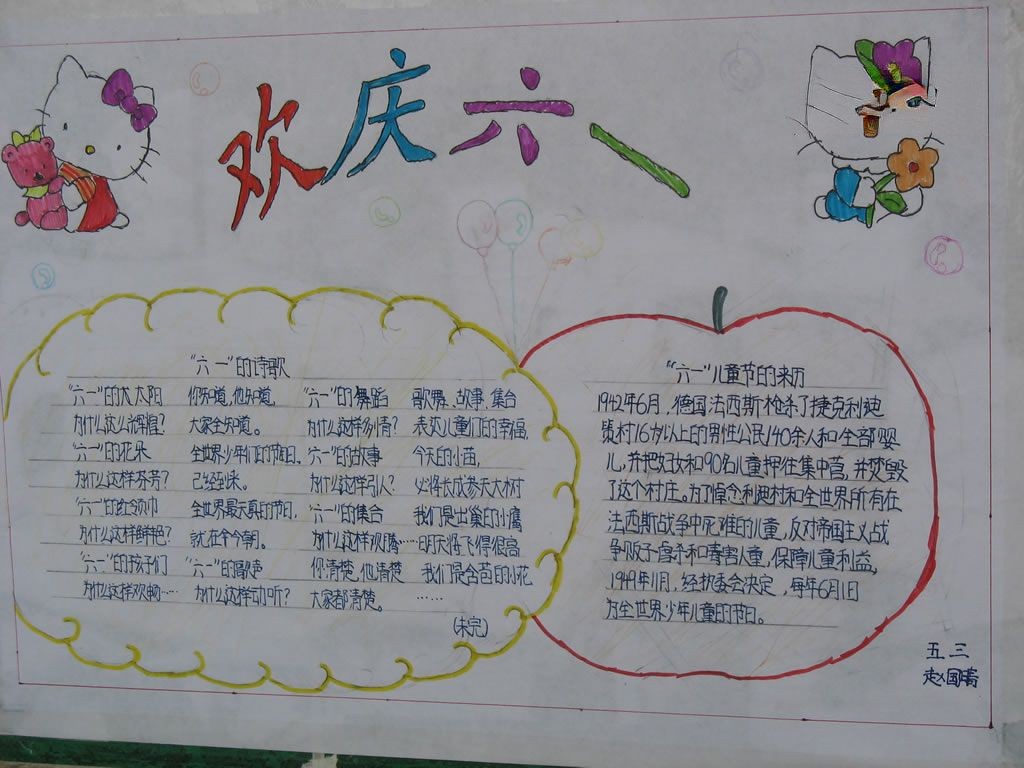 欢庆六一
"六一"的诗歌
"六一"的大太阳
为什么这么辉煌?
"六一"的花朵
为什么这样芬芳?
"六一"的红领巾
为什么这样鲜艳?
"六一"的孩子们
为什么这样欢畅……
你知道,他知道,
大家全知道。
全世界少年们的节日,
已经到来。
全世界最天真的节日,
就在今朝。
"六一"的歌声
为什么这样动听?
"六一"的舞蹈
为什么这样多情?
"六一"的故事
为什么这样引人?
"六一"的集合
为什么这样欢腾……
你清楚,他清楚
大家都清楚。
歌舞、故事、集合
表达儿童们的幸福,
今天的小苗,
必将长成参天大树
我们是出巢的小鹰
明天将飞得很高
我们是含苞的小花
……
(未完)
"六一"儿童节的来历
1942年6月,德国法西斯枪杀了捷克利迪
策村16岁以上的男性公民140余人和全部婴
儿,并把妇女和90名儿童押往集中营,并焚毁
了这个村庄。为了悼念利迪村和全世界所有在
法西斯战争中死难的儿童,反对帝国主义战
争贩子虐杀和毒害儿童,保障儿童利益,
1949年11月,经执委会决定,每年6月1日
为全世界少年儿童的节日。
五三
赵国